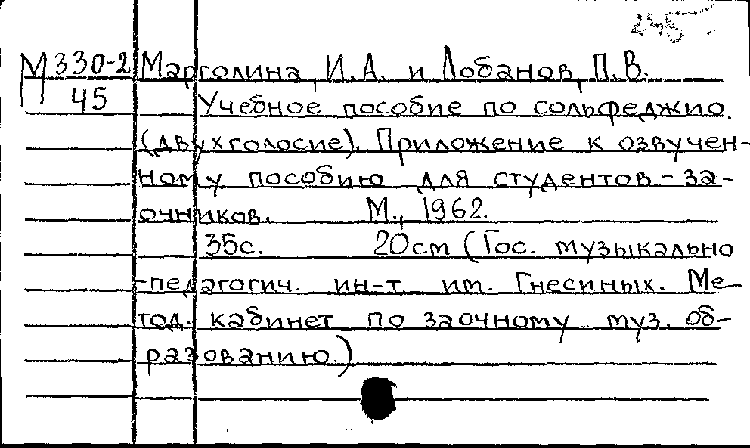 245
М 330-2 Марголина, И.А. и Лобанов, П.В.
45 Учебное пособие по сольфеджио.
(двухголосие). Приложение к озвучен-
ному пособию для студентов-за-
очников. М., 1962.
35с. 20см (Гос. музыкально
-педагогич. ин-т им. Гнесиных. Ме-
тод. кабинет по заочному муз. об-
разованию.)